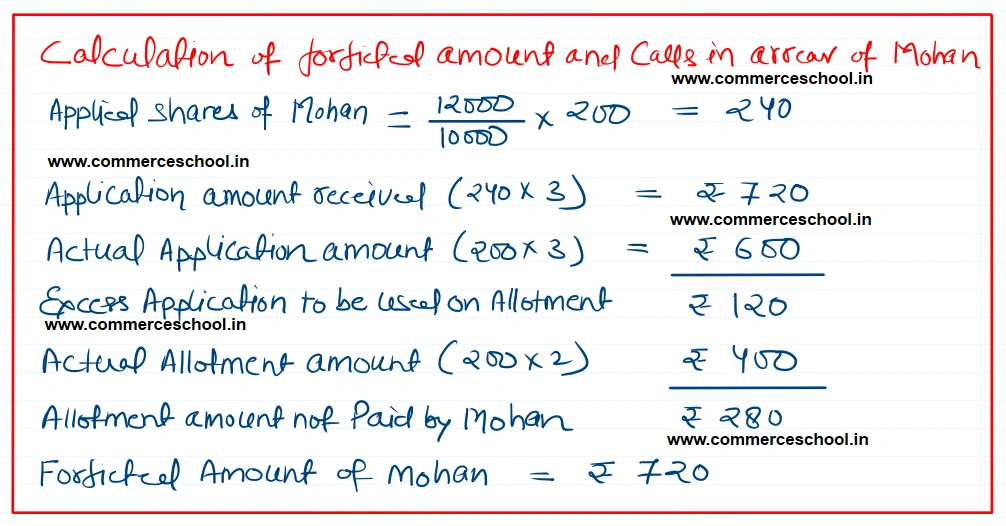 Calculation of forfieted amount and Calls in arrear of Mohan
www.commerceschool.in
Applied shares of Mohan = 12000/10000 × 200 = 240
www.commerceschool.in
Application amount received (240 × 3) = ₹ 720
www.commerceschool.in
Actual Application amount (200 × 3) = ₹ 600
Excess Application to be used on Allotment ₹ 120
www.commerceschool.in
Actual Allotment amount (200 × 2) ₹ 400
Allotment amount not Paid by Mohan ₹ 280
www.commerceschool.in
Forfieted Amount of Mohan = ₹ 720